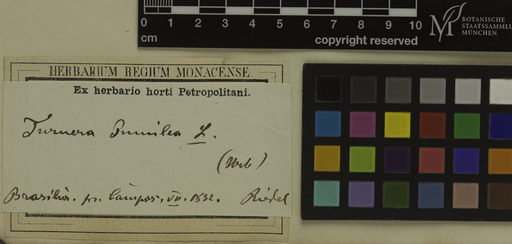 0 1 2 3 4 5 6 7 8 9 10
cm
copyright reserved
BOTANISCHE
STAATSSAMMLUNG
MÜNCHEN
HERBARIUM REGIUM MONACENSE
Ex herbario horti Petropolitani.
Turnera pumilea L.
(Urb)
Brasilia. pr. Campos. VII. 1832. Riedel